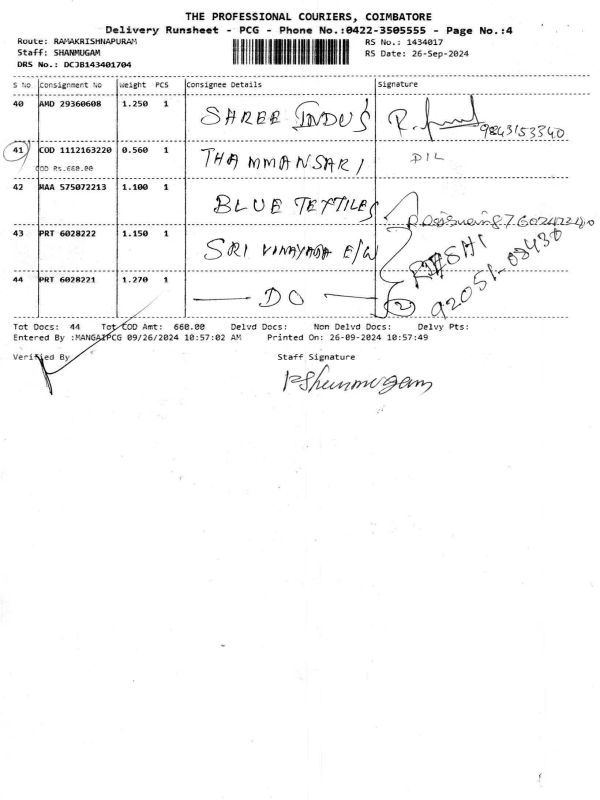 THE PROFESSIONAL COURIERS, COIMBATORE
Delivery Runsheet - PCG - Phone No.:0422-3505555 - Page No.:4
Route: RAMAKRISHNAPURAM RS No.: 1434017
Staff: SHANMUGAM RS Date: 26-Sep-2024
DRS No.: DCJB143401704
S No Consignment No Weight PCS Consignee Details Signature
40 AMD 29360608 1.250 1 SHREE INDUS 9843153340
41 COD 1112163220 0.560 1 THAMMANSARI DIL
COD Rs.660.00
42 MAA 575072213 1.100 1 BLUE TEXTILES
43 PRT 6028222 1.150 1 SRI VINAYAGA E/W RISHI
92051-08430
44 PRT 6028221 1.270 1 DO 2
Tot Docs: 44 Tot COD Amt: 660.00 Delvd Docs: Non Delvd Docs: Delvy Pts:
Entered By :MANGAIPCG 09/26/2024 10:57:02 AM Printed On: 26-09-2024 10:57:49
Verified By Staff Signature
P Shanmugam